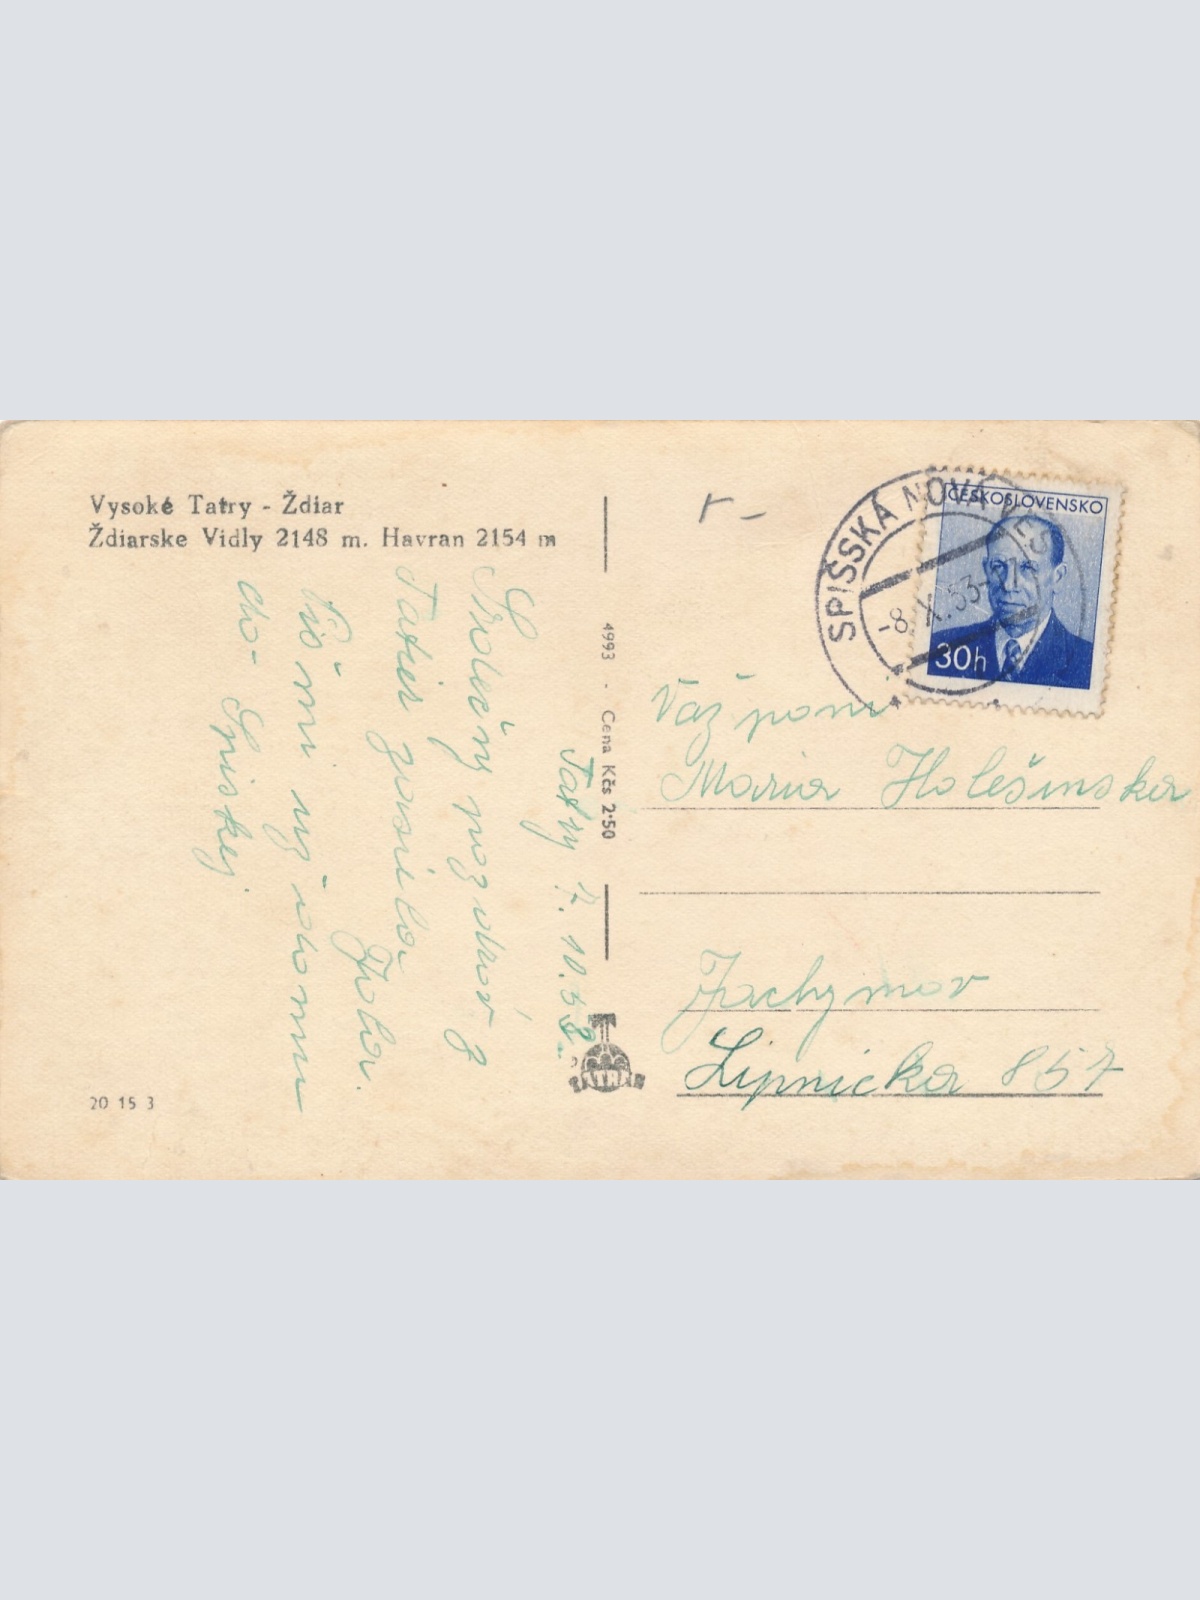 Vysoké Tatry - Ždiar
Ždiarske Vidly 2148 m. Havran 2154 m
Tatry 7. 10. 53.
Srdečný pozdrav z
Tatier posiela
Jola.
Píš mi
do Spiskej
20 15 3
4993 . Cena Kčs 2·50
TATRAN
SPIŠSKÁ NOVÁ VES
-8.X.53-
ČESKOSLOVENSKO
30h
Váž pani
Maria Holešinska
Jachymov
Lipnicka 857